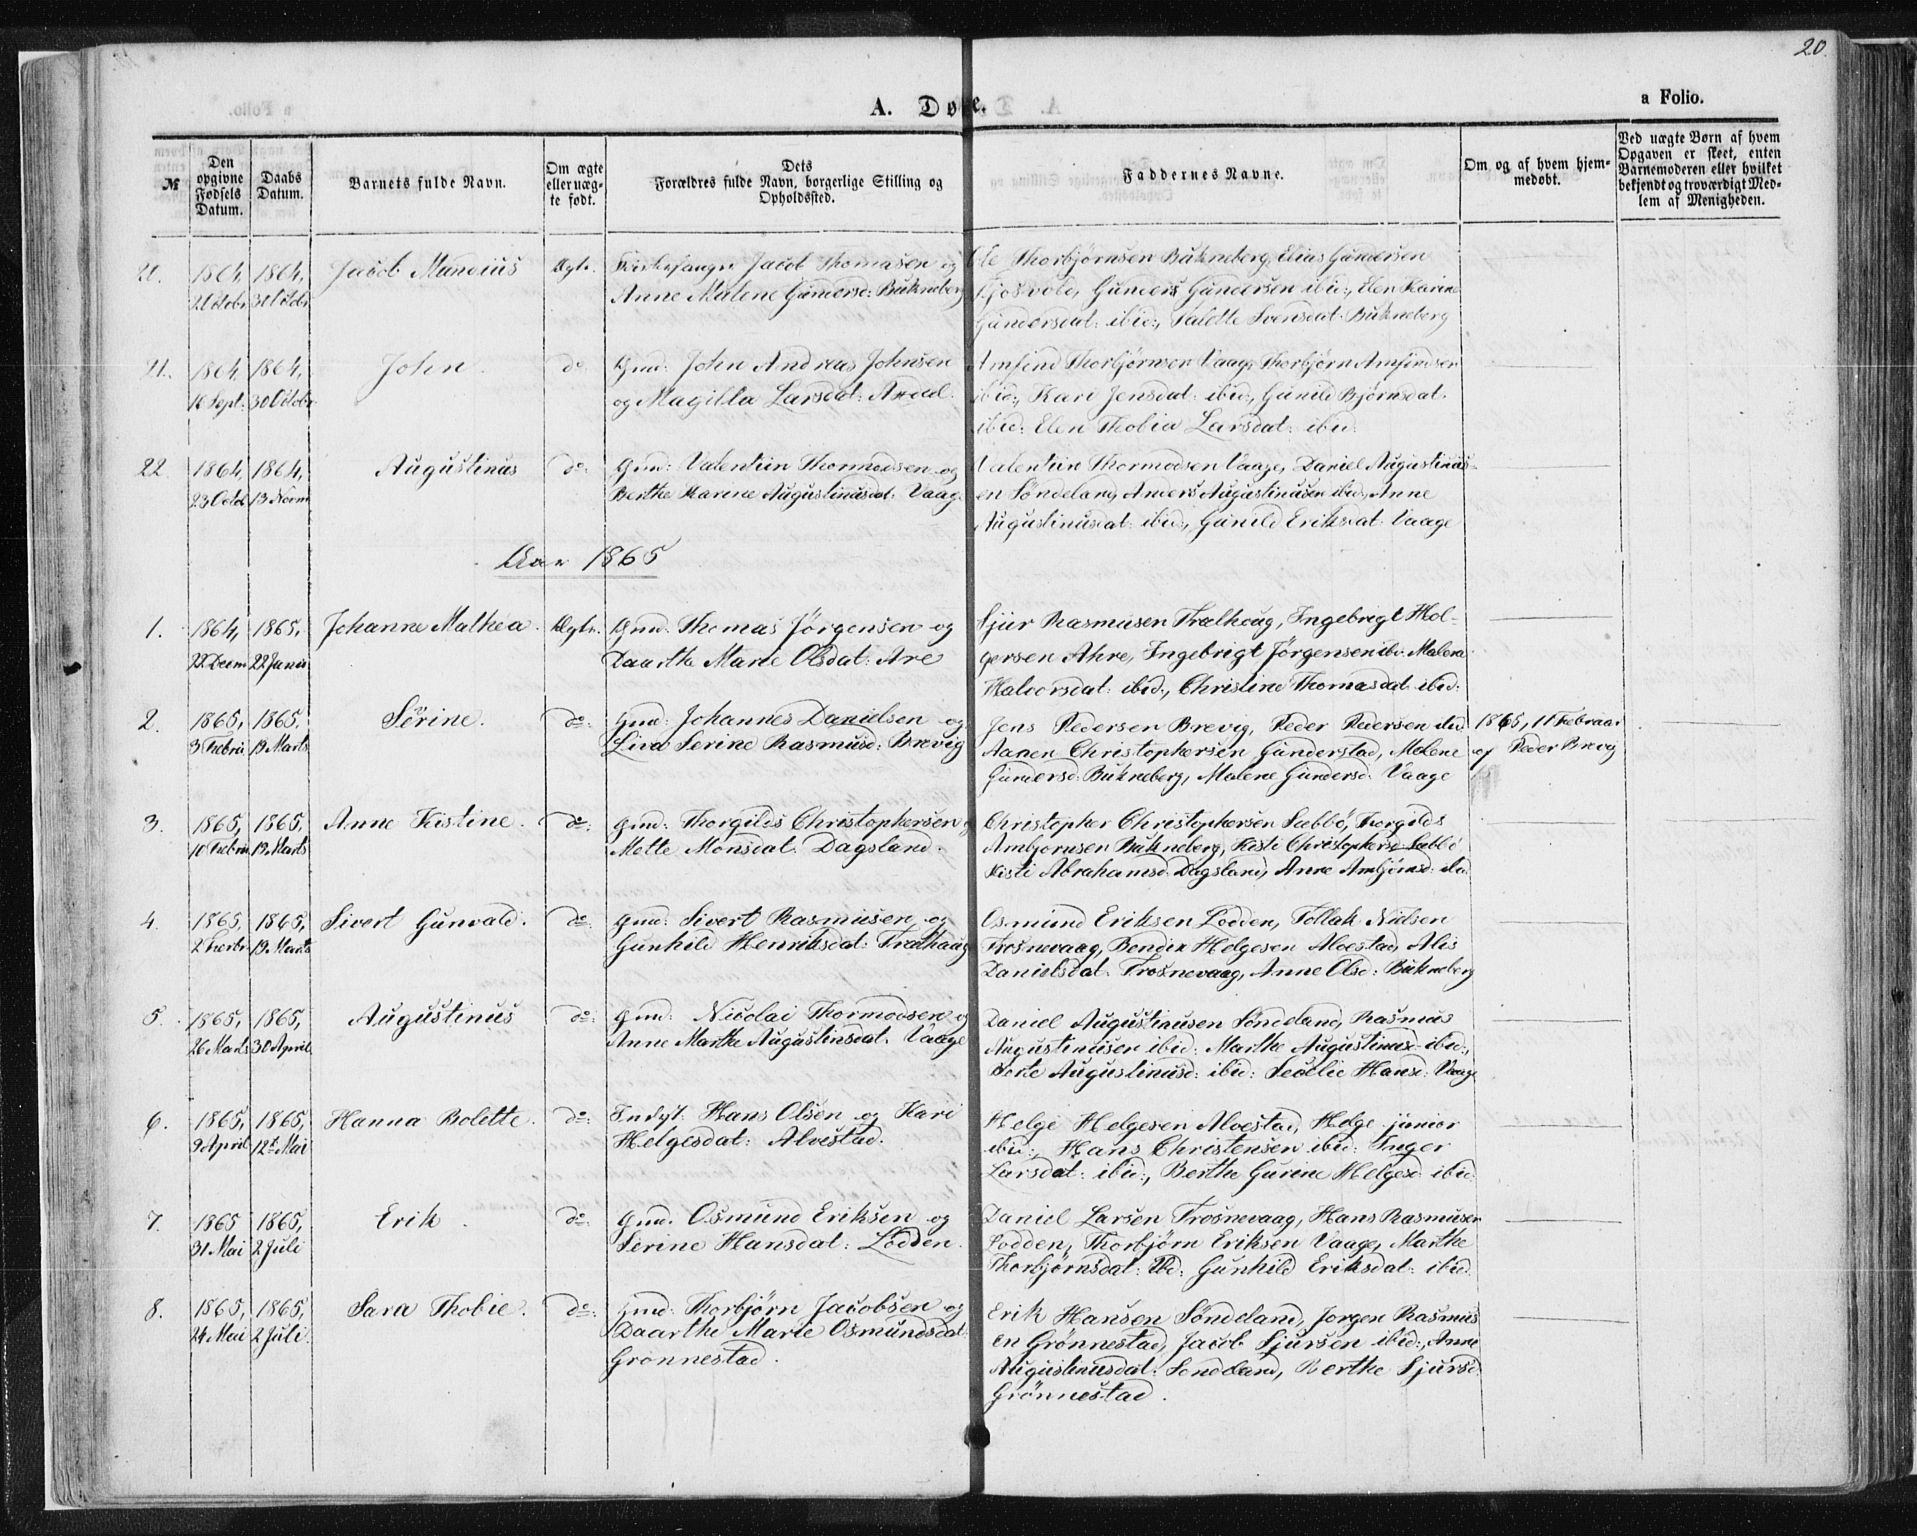 20.
A. Døbte.
a Folio.
№
Den opgivne Fødsels Datum.
Daabs Datum.
Barnets fulde Navn.
Om ægte eller uægte født.
Dets Forældres fulde Navn, borgerlige Stilling og Opholdssted.
Faddernes Navne.
Om og af hvem hjemmedøbt.
Ved uægte Børn af hvem Opgaven er skeet, enten Barnemoderen eller hvilket bekjendt og troværdigt Medlem af Menigheden.
1864, 1864, Jacob Mandius Ægte. Jacob Thomasen og Ole Thorbjørnsen Bukneberg, Elias Gundersen
21 Octobr 30 Octobr Anne Malene Gundersd: Bukneberg Gunders Gundersen ibid:, Elen Karine
Gundersdat: ibid:, Talette Svensdat: Bukneberg
21. 1864, 1864, John. do Gmd: John Andreas Johnsen Amfind Thorbjørnsen Vaage, Thorbjørn Amfindsen
16 Sept: 30 Octobr og Magilla Larsdat: Ardal. ibid:, Kari Jensdat: ibid:, Gunild Bjørnsdat.
ibid: Elen Thobia Larsdat: ibid.
22. 1864, 1864, Augustinus do: Gmd: Valentin Thormodsen og Valentin Thormodsen Vaage, Daniel Augustinus-
23 Octb 13 Novm Berthe Karine Augustinusdat: Vaage en Søndeland, Anders Augustinusen ibid:, Anne
Augustinusdat: ibid:, Gunild Eriksdat: Vaage
Aar 1865
1. 1864, 1865, Johanne Mathea. Ægte. Gmd. Thomas Jørgensen og Sjur Rasmusen Trælhoug, Ingebrigt Hol-
22 Decm 22 Janu Daarthe Marie Olsdat: Are gersen Ahre, Ingebrigt Jørgensen ibd. Malena
Halvorsdat: ibid:, Christine Thomasdat ibid:
2. 1865, 1865, Sørine. do: Gmd: Johannes Danielsen og Jens Pedersen Brevig, Peder Pedersen ibd. 1865, 11 Februar
3 Febru 19 Marts Liva Serine Rasmusd: Brevig Aanen Christophersen Gunderstad, Malene af Peder Brevig
Gundersd: Bukneberg, Malene Gundersd: Vaage
3. 1865, 1865, Anne Kistine. do: Gmd: Thorgilds Christophersen og Christopher Christophersen Sabbø, Thorgilds
10 Febru 19 Marts Mette Monsdat. Dagsland. Ambjornsen Bukneberg, Kisti Christophersd Sabbø
Kisti Abrahamsd: Dagsland, Anne Ambjørnsd: ibd
4. 1865, 1865, Sivert Gunvald. do: Gmd: Sivert Rasmusen og Osmund Eriksen Lodden, Tollak Nielsen
2 Febr 19 Marts Gunhild Henriksdat: Trælhaug Trosnevaag, Bendix Helgesen Alvestad, Alis
Danielsdat. Trosnevaag, Anne Olsd: Bukneberg
5. 1865, 1865, Augustinus do: Gmd: Nicolai Thormodsen og Daniel Augustinusen Søndeland, Rasmus
26 Marts 30 April Anne Marthe Augustinsdat. Vaage Augustinusen ibid: Marthe Augustinusd: ibid:,
Berte Augustinusd: ibid: Secelie Hansd: Vaage
6. 1865, 1865, Hanna Bolette. do: Indyst: Hans Olsen og Kari Helge Helgesen Alvestad, Helge junior
9 April 12t Mai Helgesdat: Alvestad. ibid:, Hans Christensen ibid: Inger
Larsdat: ibid:, Berthe Gurine Helgesd: ibid:
7. 1865 1865, Erik. do: Gmd. Osmund Eriksen og Daniel Larsen Trosnevaag, Hans Rasmusen
31 Mai 2 Juli Serine Hansdat: Lodden. Lodden, Thorbjørn Eriksen Vaage, Marthe
Thorbjørnsdat: Ibd: Gunhild Eriksdat: ibid.
8. 1865, 1865, Sara Thobie. do: Gmd: Thorbjörn Jacobsen og Erik Hansen Söndeland, Jorgen Rasmus
24 Mai 2 Juli. Daarthe Marie Osmundsdat: en Grönnestad, Jacob Sjursen ibid:, Anne
Grönnestad. Augustinusdat: Sondeland, Berthe Sjursd:
Grönnestad.